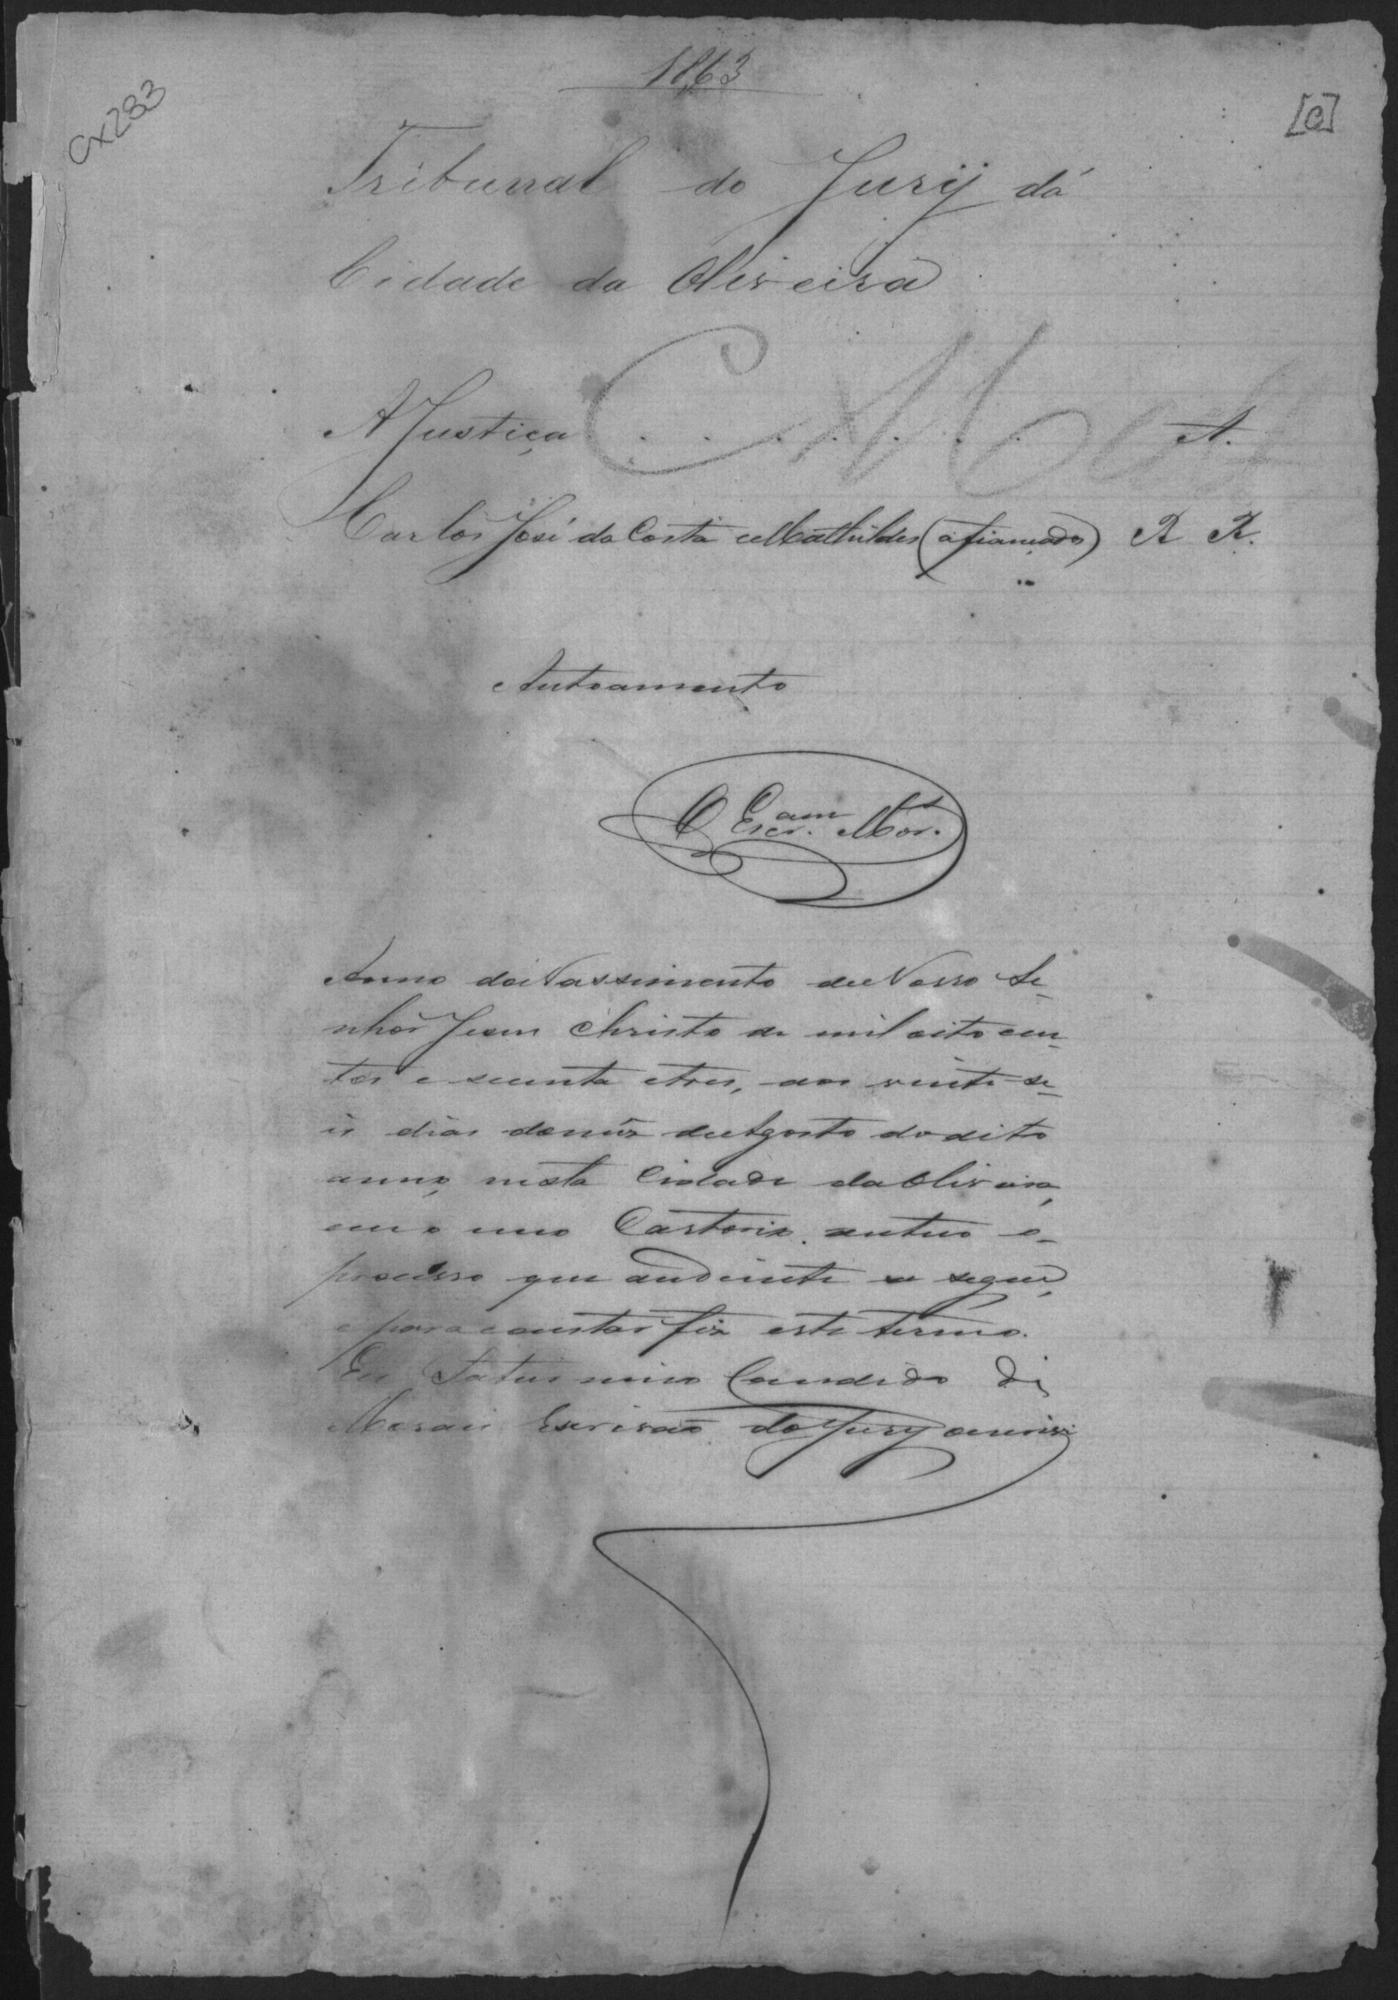 1863
Cx283
[C]
Tribunal do Jury da
Cidade da Oliveira
A Justiça . . . . . . . A.
Carlos José da Costa e Mathildes (afiançados) R R.
Autoamento
O Escr.am Mor.s
Anno do Nassimento de Nosso Se-
nhor Jesus Christo de mil oito cen-
tos e secenta e tres, aos vinte se-
is dias do mez de Agosto do dito
anno, nesta Cidade da Oliveira,
em o meo Cartorio autuo o
processo que audiente se segue,
e para constar fiz este termo.
Eu Saturnino Candido de
Morais Escrivão do Jury